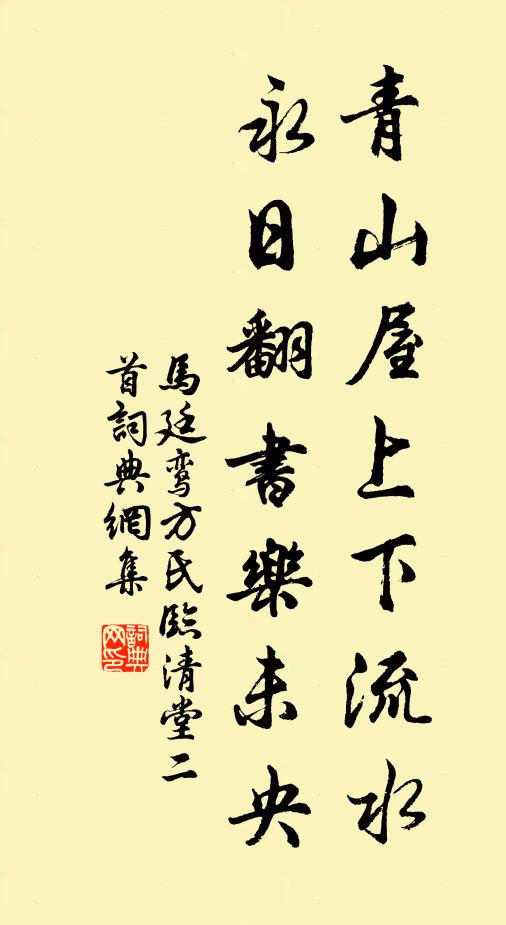 青山屋上下流水
永日翻書樂未央
馬廷鸞方氏臨清堂二
首詞典網集
詞典
網印